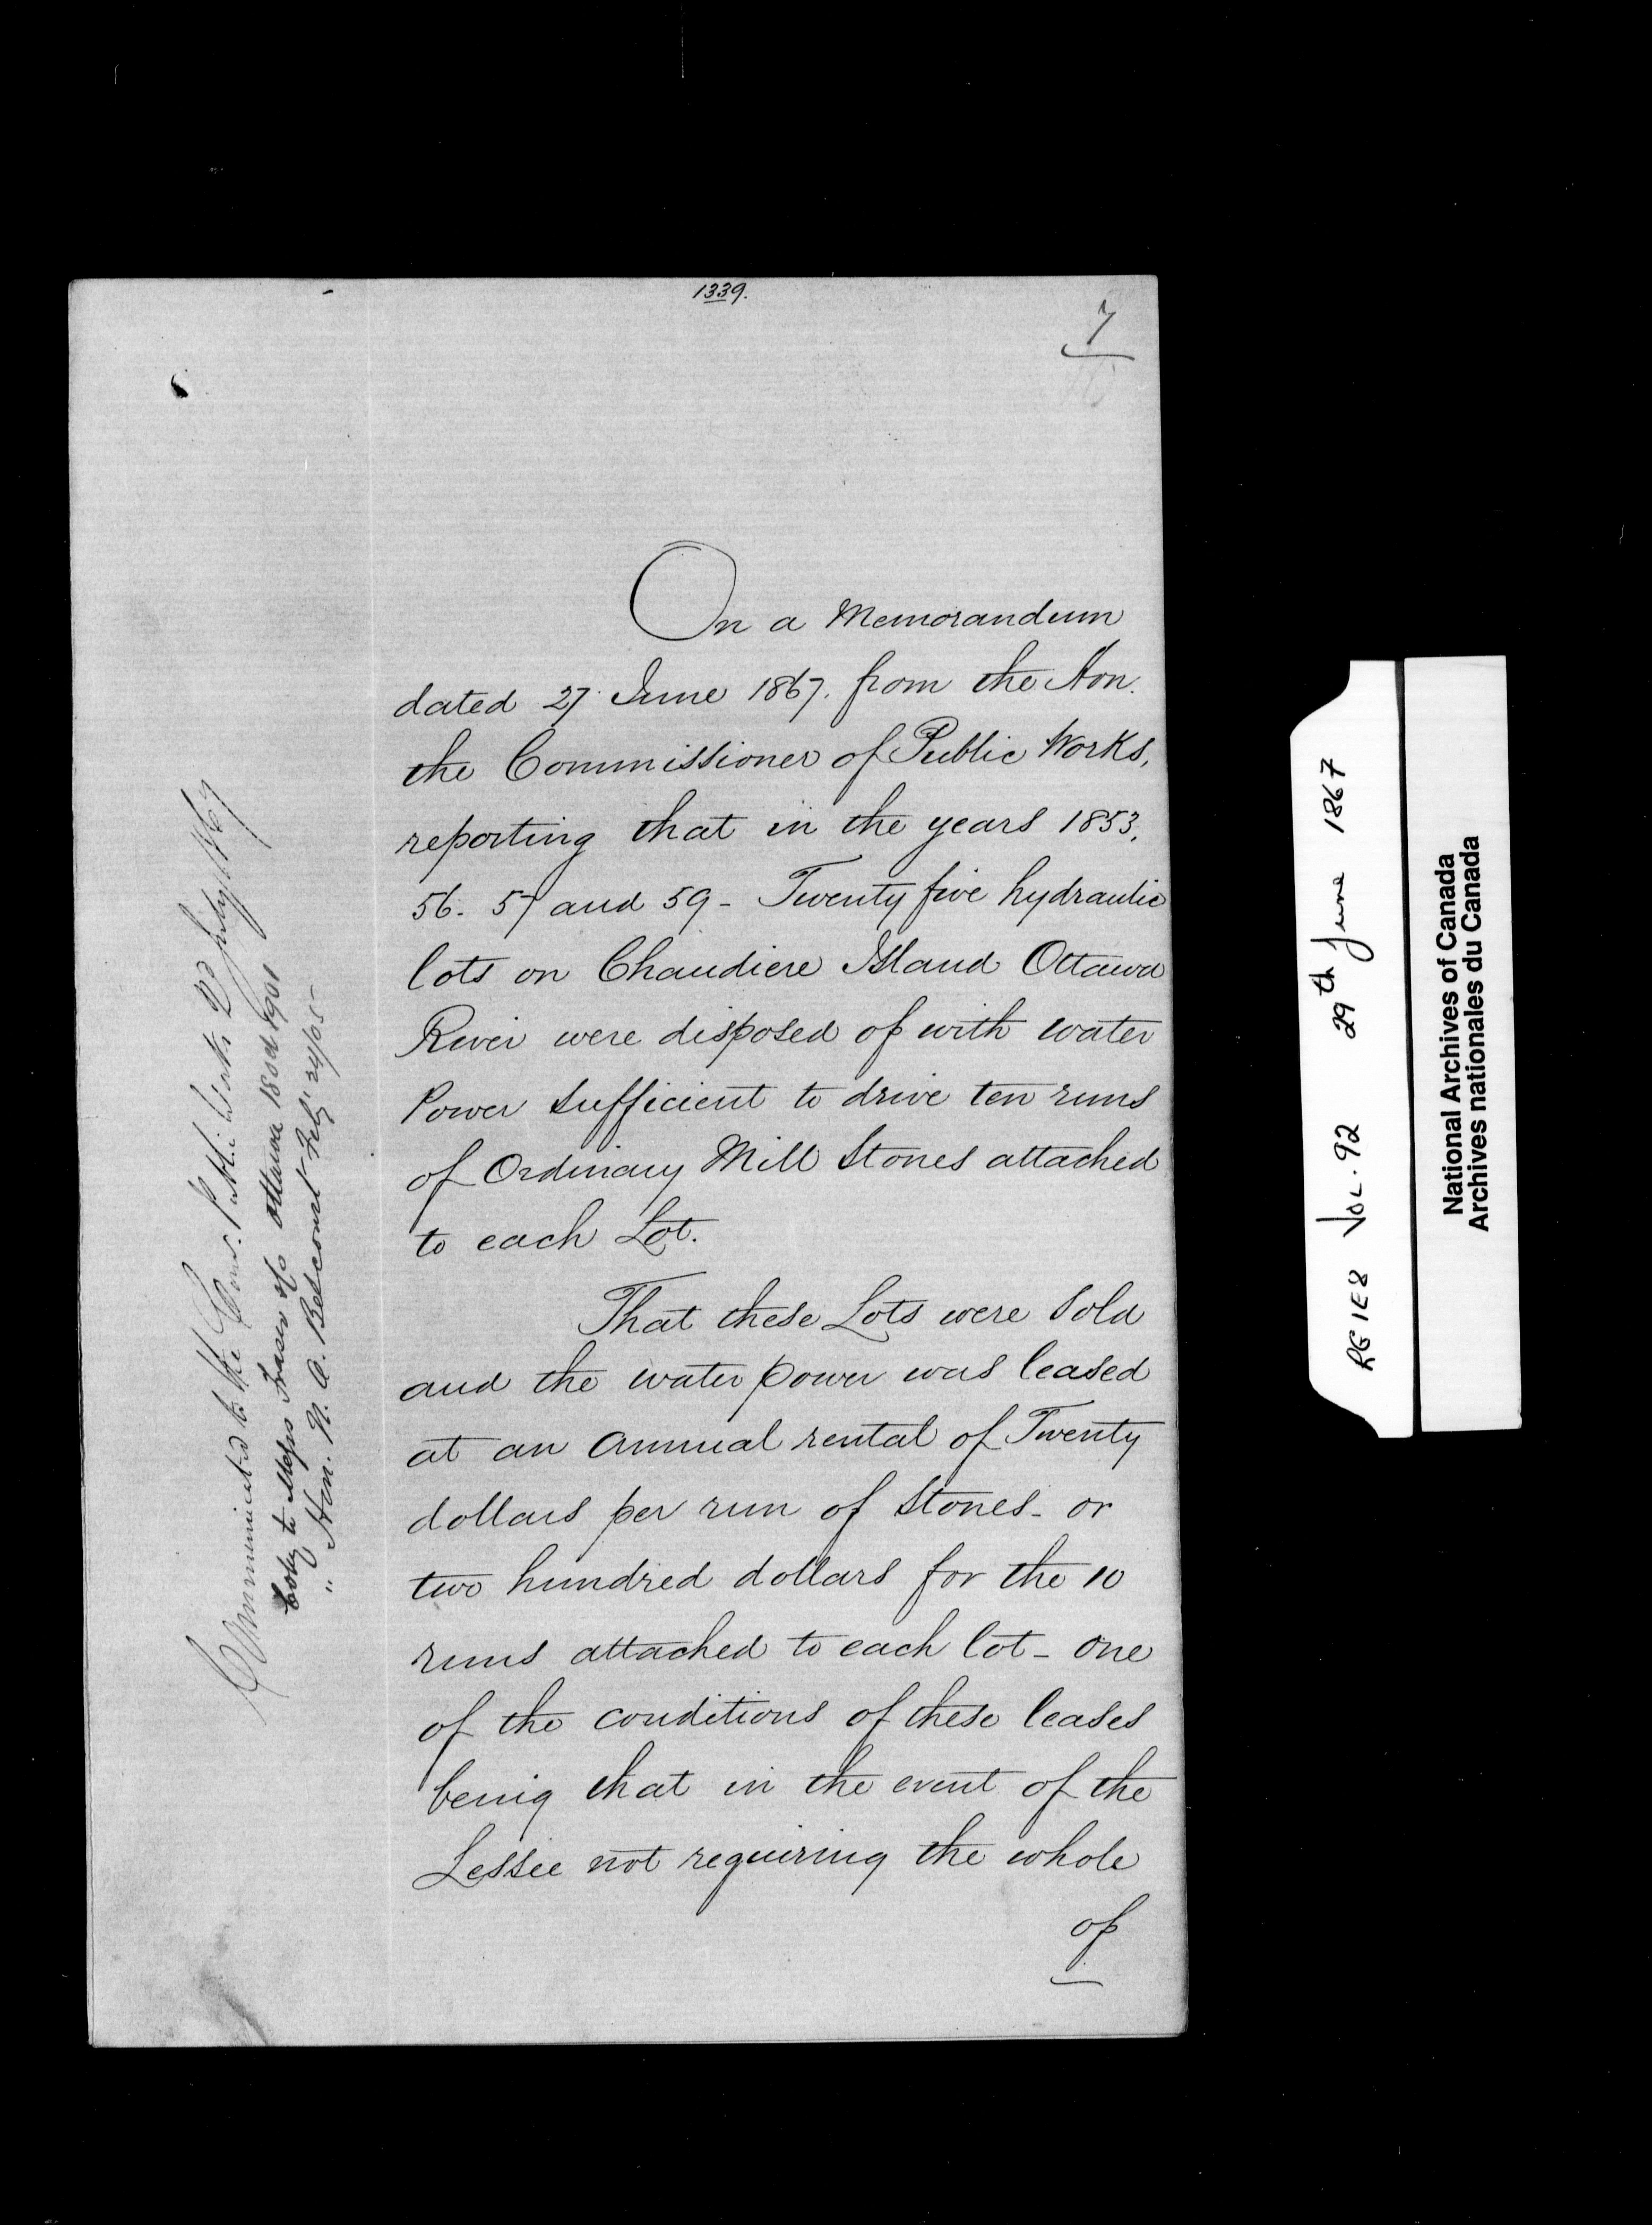 1339.
7
On a Memorandum
dated 27 June 1867. from the Hon.
the Commissioner of Public Works,
reporting that in the years 1853,
56. 57 and 59 - Twenty five hydraulic
lots on Chaudiere Island Ottawa
River were disposed of with water
Power sufficient to drive ten runs
of Ordinary Mill Stones attached
to each Lot.
That these Lots were Sold
and the water power was leased
at an Annual rental of Twenty
dollars per run of Stones - or
two hundred dollars for the 10
runs attached to each lot - one
of the conditions of these leases
being that in the event of the
Lessee not requiring the whole
of
Communicated to the Com. Public Works July 1867
Copy to Messrs Fraser Ottawa 18 Oct 1901
" Hon. N. A. Belcourt Feby 24/05-
RG 1E8 VOL. 92 29th June 1867
National Archives of Canada
Archives nationales du Canada